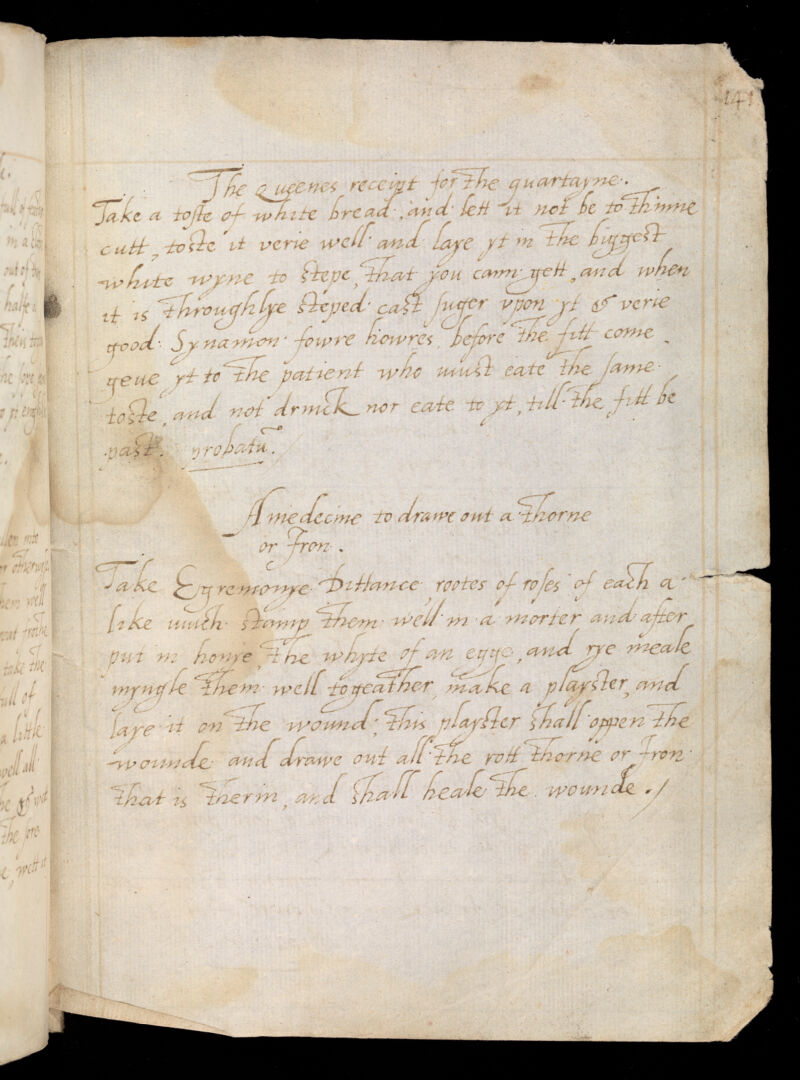 141
The Queenes receipt for the quartayne.
Take a toste of white bread, and lett it not be to thinne
cutt, toste it verie well and laye yt in the biggest
white wyne to stepe, that you cann gett, and when
it is throughlye steped cast suger vpon yt & verie
good Synamon fowre howres before the fitt come
geue yt to the patient who must eate the same
toste, and not drinck nor eate to yt, till the fitt be
past. probatū.
A medecine to drawe out a thorne
or Iron.
Take Egremonye Dittance, rootes of roses of each a
like much stamp them well in a morter and after
put in honye, the whyte of an egge, and rye meale
myngle them well togeather, make a playster, and
laye it on the wound, this playster shall oppen the
wounde and drawe out all the rott thorne or Iron
that is therin, and shall heale the wounde.